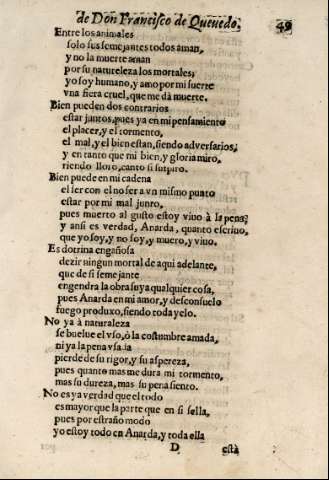 de Don Francisco de Queuedo. 49
Entre los animales
solo sus semejantes todos aman,
y no la muerte aman
por su natureleza los mortales;
yo soy humano, y amo por mi suerte
vna fiera cruel, que me dà muerte.
Bien pueden dos contrarios
estar juntos, pues ya en mi pensamiento
el placer, y el tormento,
el mal, y el bien estan, siendo aduersarios,
y en tanto que mi bien, y gloria miro,
riendo lloro, canto si suspiro.
Bien puede en mi cadena
el ser con el no ser a vn mismo punto
estar por mi mal junto,
pues muerto al gusto estoy viuo à la pena;
y ansi es verdad, Anarda, quanto escriuo,
que yo soy, y no soy, y muero, y viuo.
Es dotrina engañosa
dezir ningun mortal de aqui adelante,
que de si semejante
engendra la obra suya qualquier cosa,
pues Anarda en mi amor, y desconsuelo
fuego produxo, siendo toda yelo.
No ya à naturaleza
se buelue el vso, ò la costumbre amada,
ni ya la pena vsada
pierde de su rigor, y su aspereza,
pues quanto mas me dura mi tormento,
mas su dureza, mas su pena siento.
No es ya verdad que el todo
es mayor que la parte que en si sella,
pues por estraño modo
yo estoy todo en Anarda, y toda ella
D està